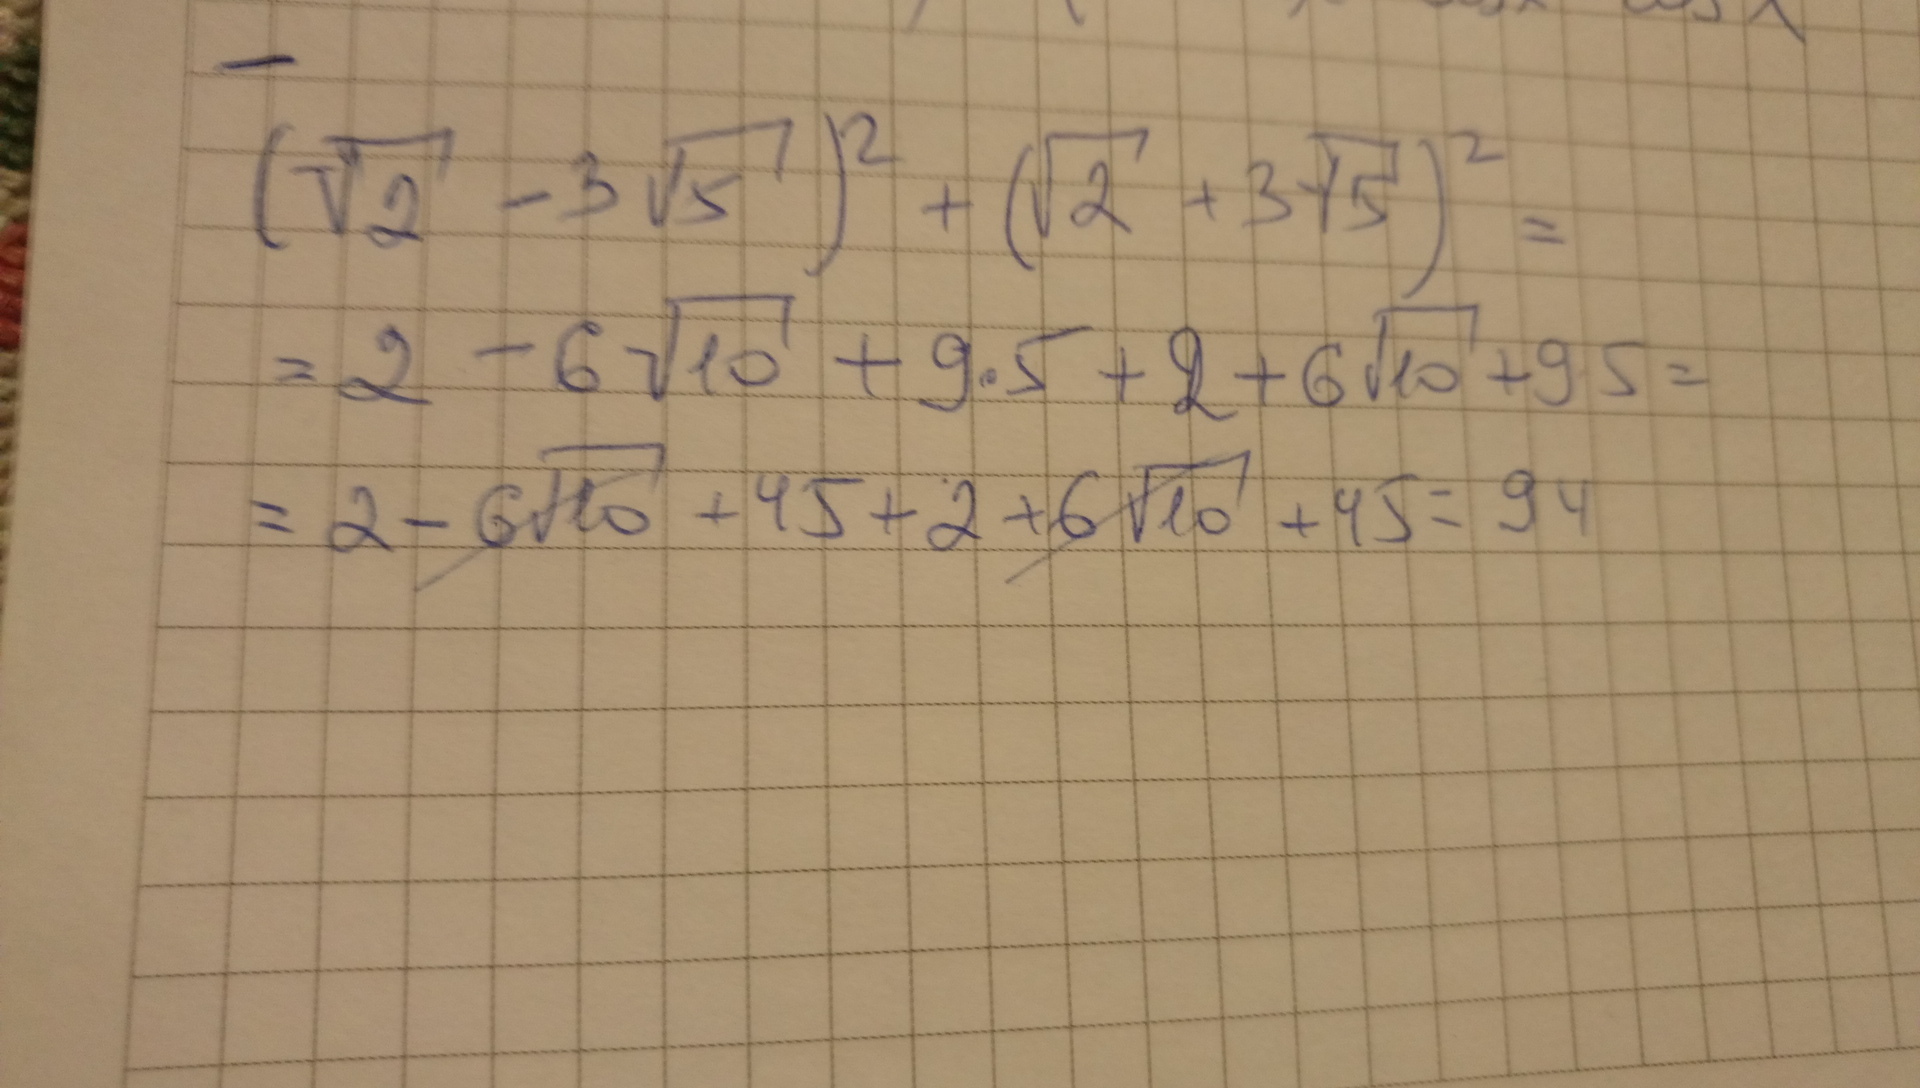 (√2 - 3√5)² + (√2 + 3√5)² =
= 2 - 6√10 + 9·5 + 2 + 6√10 + 9·5 =
= 2 - 6√10 + 45 + 2 + 6√10 + 45 = 94